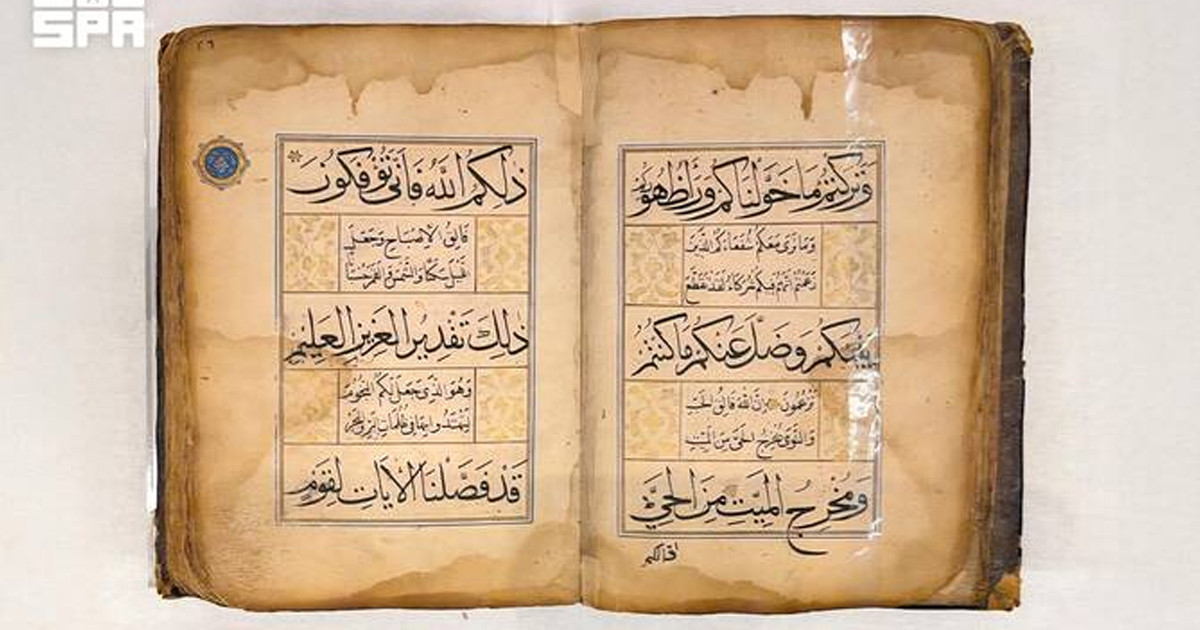 SPA
وَتَرَكْتُمْ مَا خَوَّلْنَاكُمْ وَرَاءَ ظُهُورِكُمْ
وَمَا نَرَى مَعَكُمْ شُفَعَاءَكُمُ الَّذِينَ
زَعَمْتُمْ أَنَّهُمْ فِيكُمْ شُرَكَاءُ لَقَدْ تَقَطَّعَ
بَيْنَكُمْ وَضَلَّ عَنْكُمْ مَا كُنْتُمْ
تَزْعُمُونَ إِنَّ اللَّهَ فَالِقُ الْحَبِّ
وَالنَّوَى يُخْرِجُ الْحَيَّ مِنَ الْمَيِّتِ
وَمُخْرِجُ الْمَيِّتِ مِنَ الْحَيِّ
ذلكم
٤٦
ذٰلِكُمُ اللَّهُ فَأَنَّى تُؤْفَكُونَ
فَالِقُ الْإِصْبَاحِ وَجَعَلَ
اللَّيْلَ سَكَنًا وَالشَّمْسَ وَالْقَمَرَ حُسْبَانًا
ذٰلِكَ تَقْدِيرُ الْعَزِيزِ الْعَلِيمِ
وَهُوَ الَّذِي جَعَلَ لَكُمُ النُّجُومَ
لِتَهْتَدُوا بِهَا فِي ظُلُمَاتِ الْبَرِّ وَالْبَحْرِ
قَدْ فَصَّلْنَا الْآيَاتِ لِقَوْمٍ